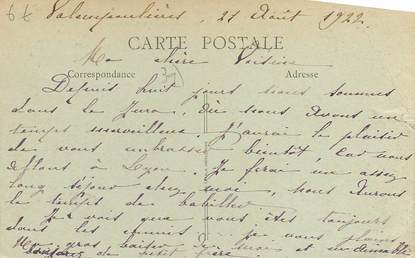 21 Août 1922.
CARTE POSTALE
Ma chère
Correspondance Adresse
Depuis huit jours nous sommes
dans le Jura, où nous avons un
temps merveilleux. J'aurai le plaisir
de vous embrasser bientôt, car nous
à Lyon. Je ferai un assez
long séjour chez moi, nous aurons
le temps de babiller.
Je vois que vous êtes toujours
dans les ennuis... je vous plains
gros baiser
petit frère.